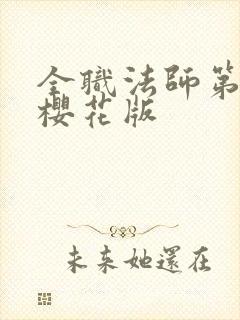 全職法師第
櫻花版
未来她還在